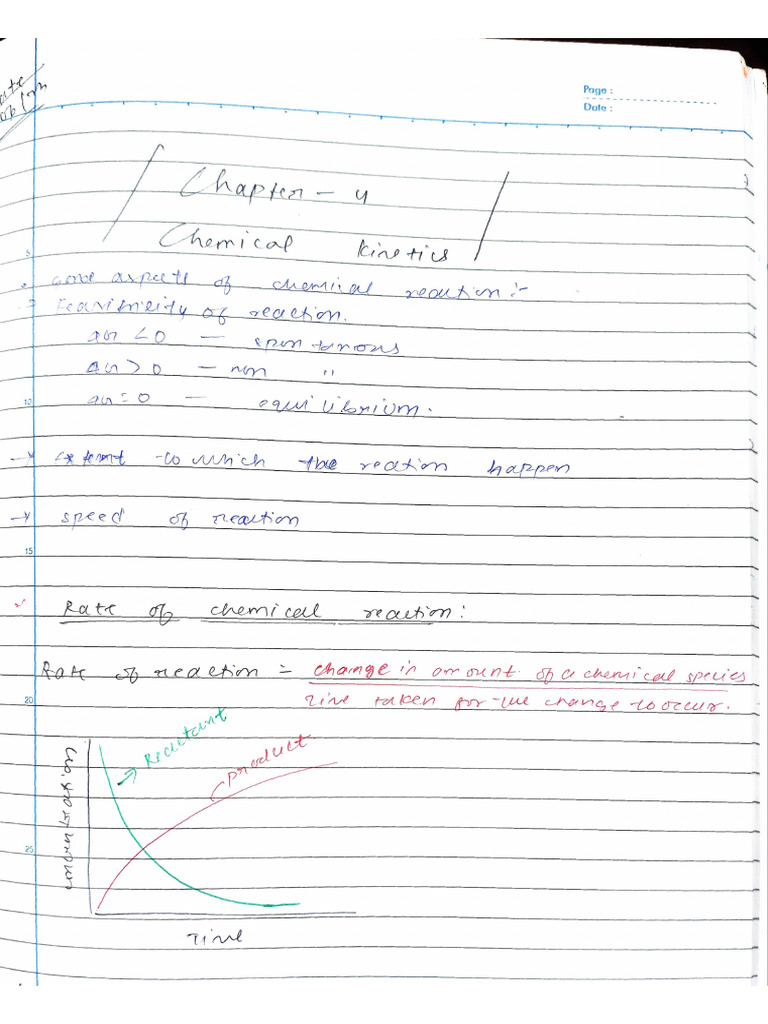 Page :
Date :
Chapter - 4
Chemical kinetics
5
Some aspects of chemical reaction :-
of reaction.
ΔG < 0 — spontanous
ΔG > 0 — non "
10
ΔG = 0 — equilibrium.
→ Extent to which the reation happen
→ speed of reaction
15
Rate of chemical reaction :
Rate of reaction = change in amount of a chemical species
20
Time taken for the change to occur.
Reactant
product
25
Time